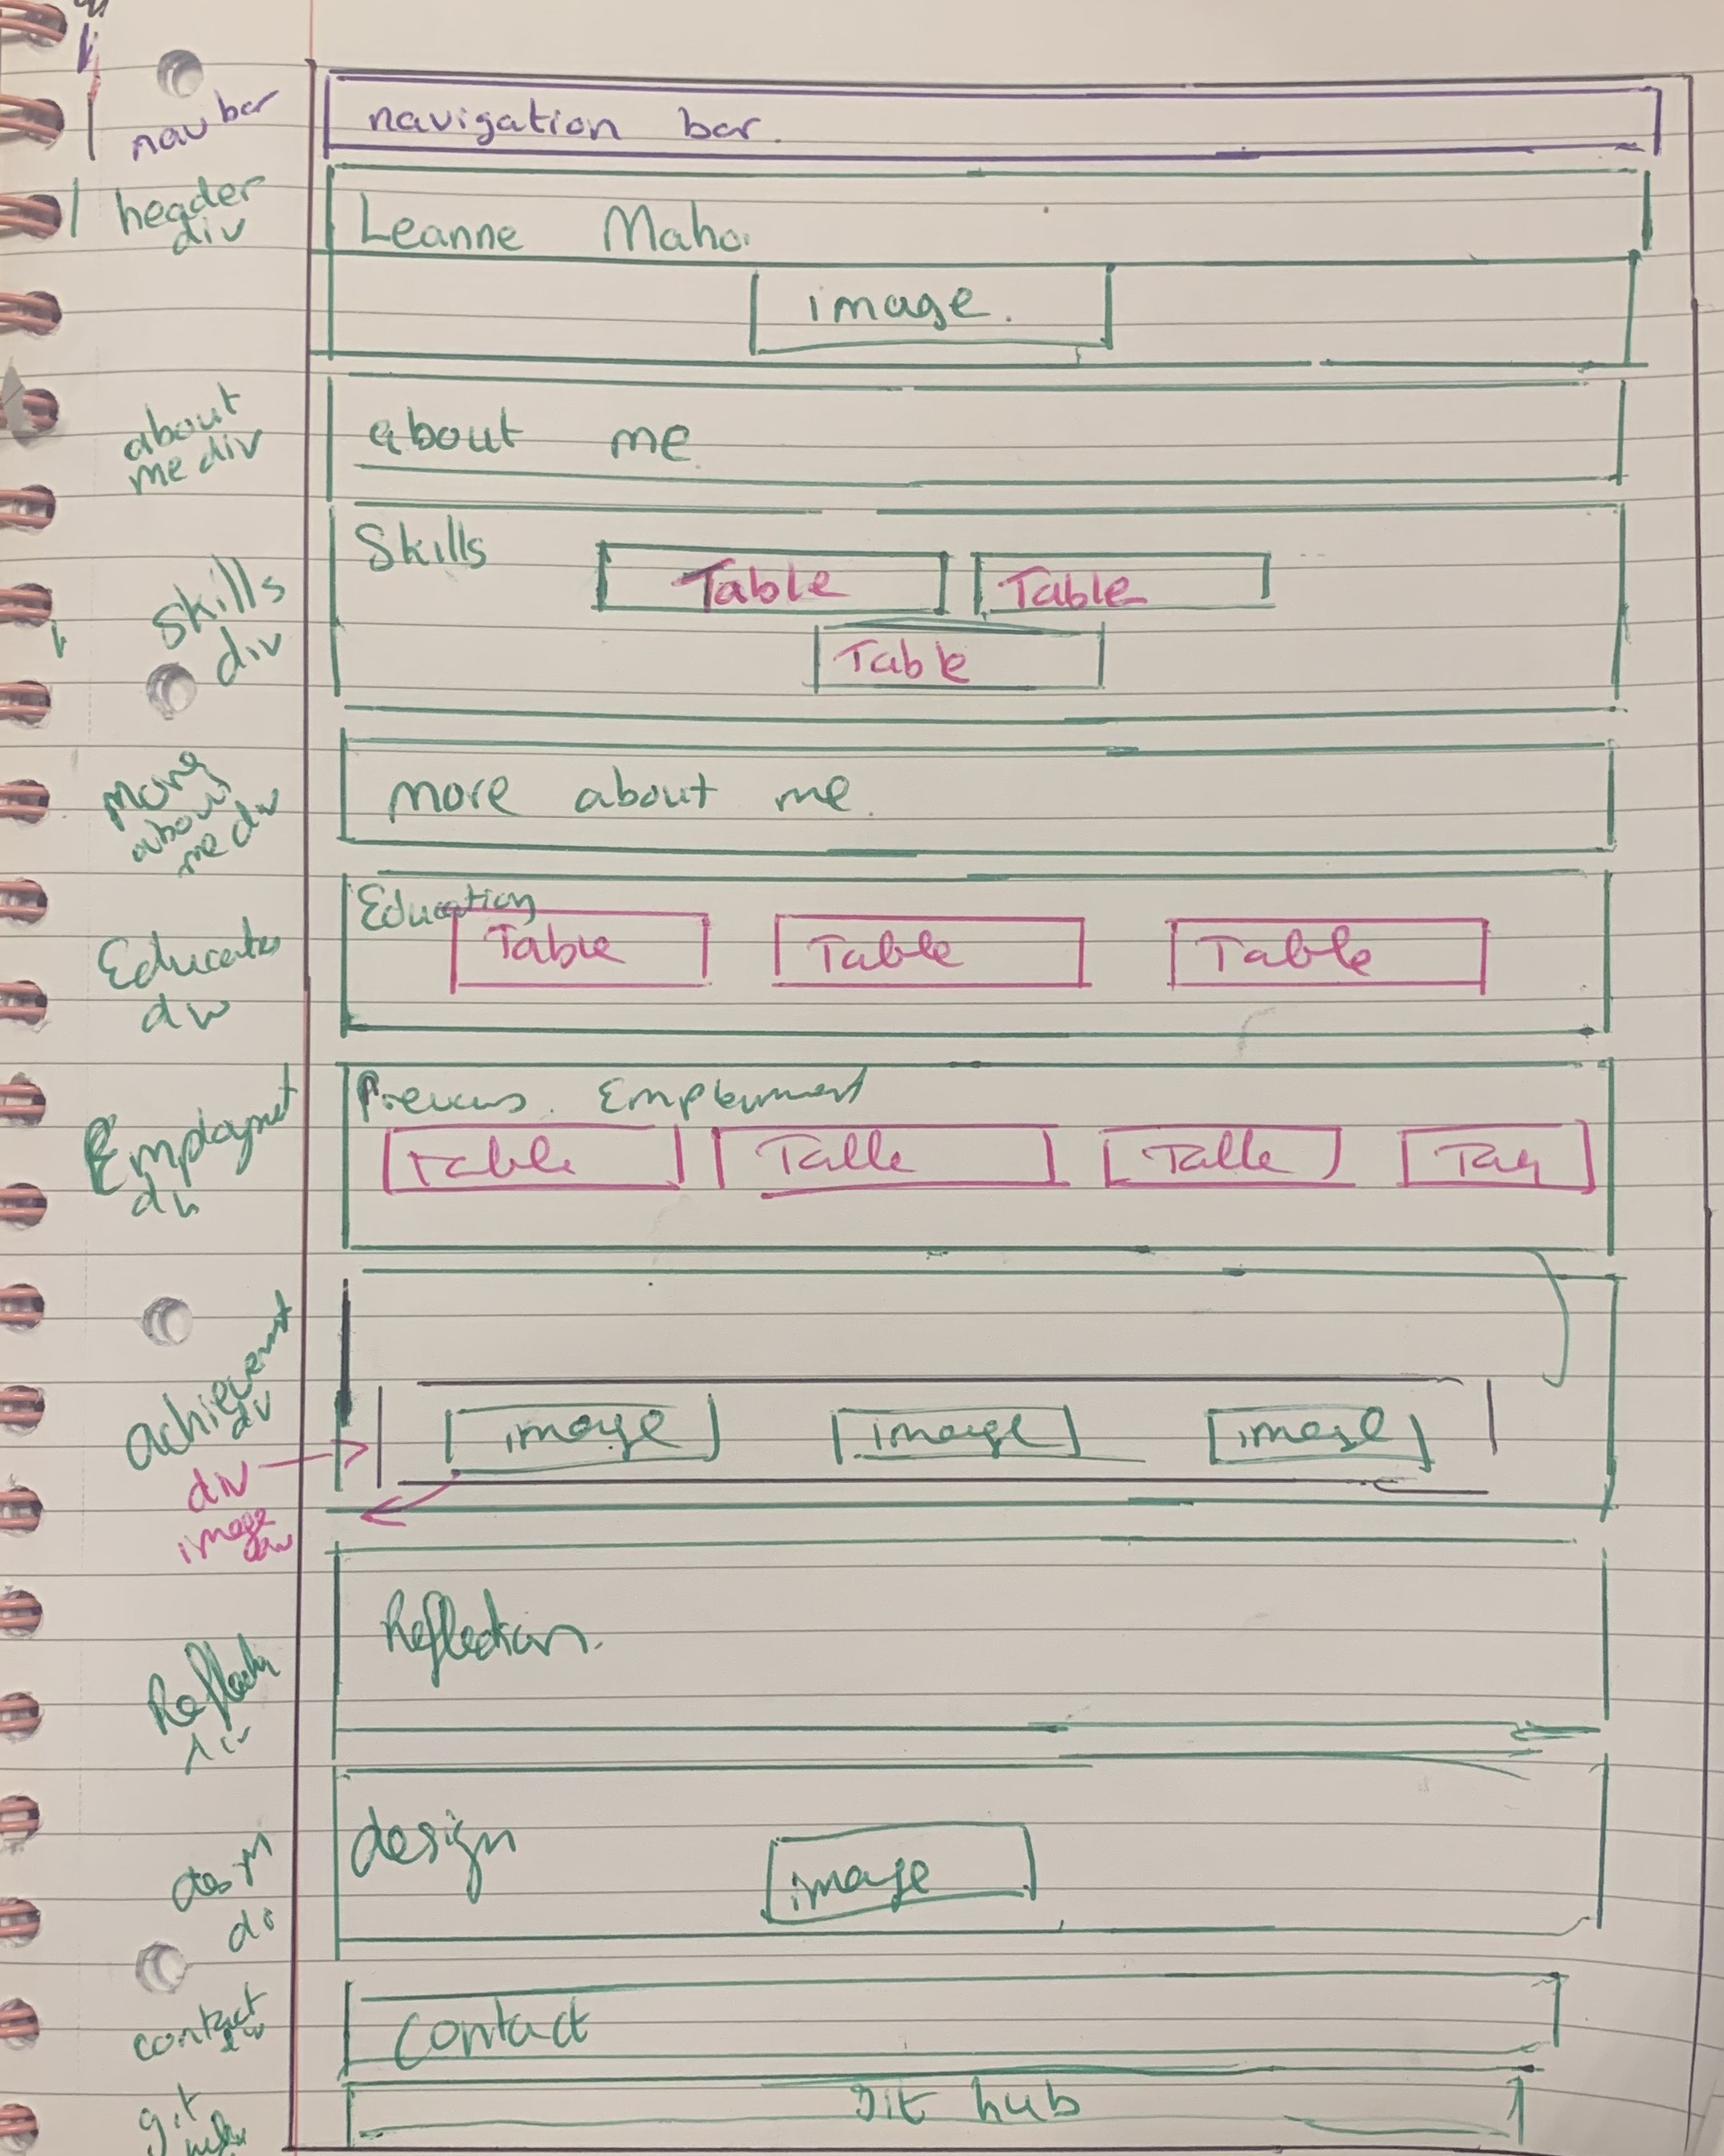 nav bar
navigation bar.
header
div
Leanne Maho
image.
about
me div
about me
Skills
div
Skills
Table
Table
Table
more
about
me div
more about me.
Education
Table
Table
Table
div
Employment
div
Previous. Employment
Table
Table
Table
achievement
div
image
image
image
div
image
div
Reflection.
div
design
image
contact
div
contact
git
git hub